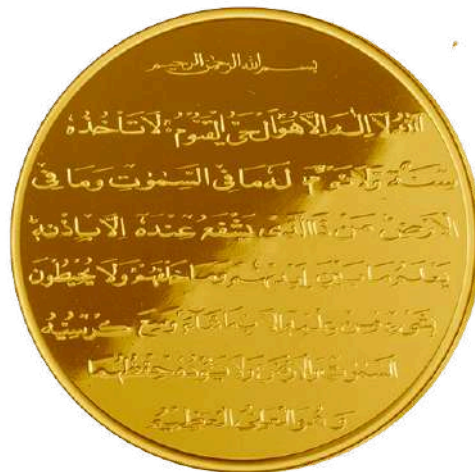 بسم الله الرحمن الرحيم
الله لا إله إلا هو الحي القيوم لا تأخذه
سنة ولا نوم له ما في السموت وما في
الأرض من ذا الذي يشفع عنده إلا بإذنه
يعلم ما بين أيديهم وما خلفهم ولا يحيطون
بشيء من علمه إلا بما شاء وسع كرسيه
السموت والأرض ولا يؤده حفظهما
وهو العلي العظيم